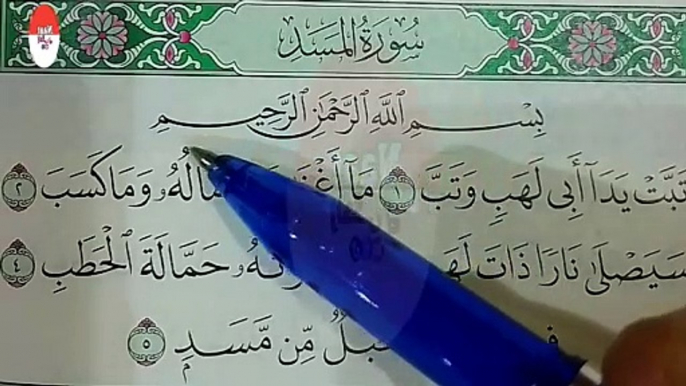 سُورَةُ الْمَسَدِ
بِسْمِ اللَّهِ الرَّحْمَٰنِ الرَّحِيمِ
تَبَّتْ يَدَا أَبِي لَهَبٍ وَتَبَّ ١ مَا أَغْنَ مَالُهُ وَمَا كَسَبَ ٢
سَيَصْلَىٰ نَارًا ذَاتَ لَهَ حَمَّالَةَ الْحَطَبِ ٤
مِّن مَّسَدٍ ٥